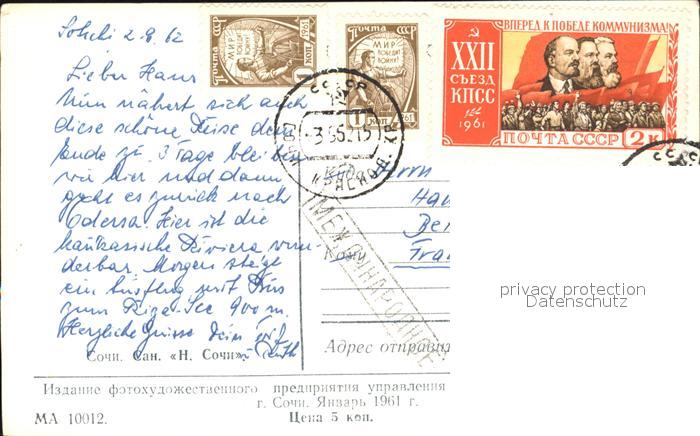 Sotchi 2.9.62
Lieber Hans
Nun nähert sich auch
diese schöne Reise dem
Ende zu. 3 Tage bleiben
wir hier und dann
geht es zurück nach
Odessa. Hier ist die
kaukasische Riviera wun-
derbar. Morgen steigt
ein Ausflug mit Bus
zum Riza-See 900 m.
Herzliche Grüsse Dein
Сочи. Сан. «Н. Сочи»
Издание фотохудожественного предприятия управления
г. Сочи. Январь 1961 г.
МА 10012. Цена 5 коп.
Почта СССР
1961
МИР ПОБЕДИТ ВОЙНУ!
1 КОП
Почта СССР
МИР ПОБЕДИТ ВОЙНУ!
1 КОП 1961
ВПЕРЕД К ПОБЕДЕ КОММУНИЗМА!
XXII
СЪЕЗД
КПСС
1961
ПОЧТА СССР 2 К
СССР
МЕЖДУНАРОДНОЕ
Herrn
Ha
Be
Кому
Fra
Адрес отправи
privacy protection
Datenschutz